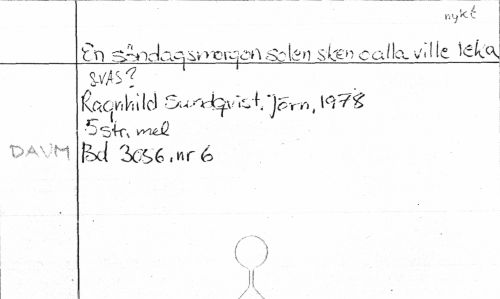 nykt
En söndagsmorgon solen sken o alla ville leka
SVAS?
Ragnhild Sundqvist, Jörn, 1978
5 str, mel
DAUM Bd 3056, nr 6